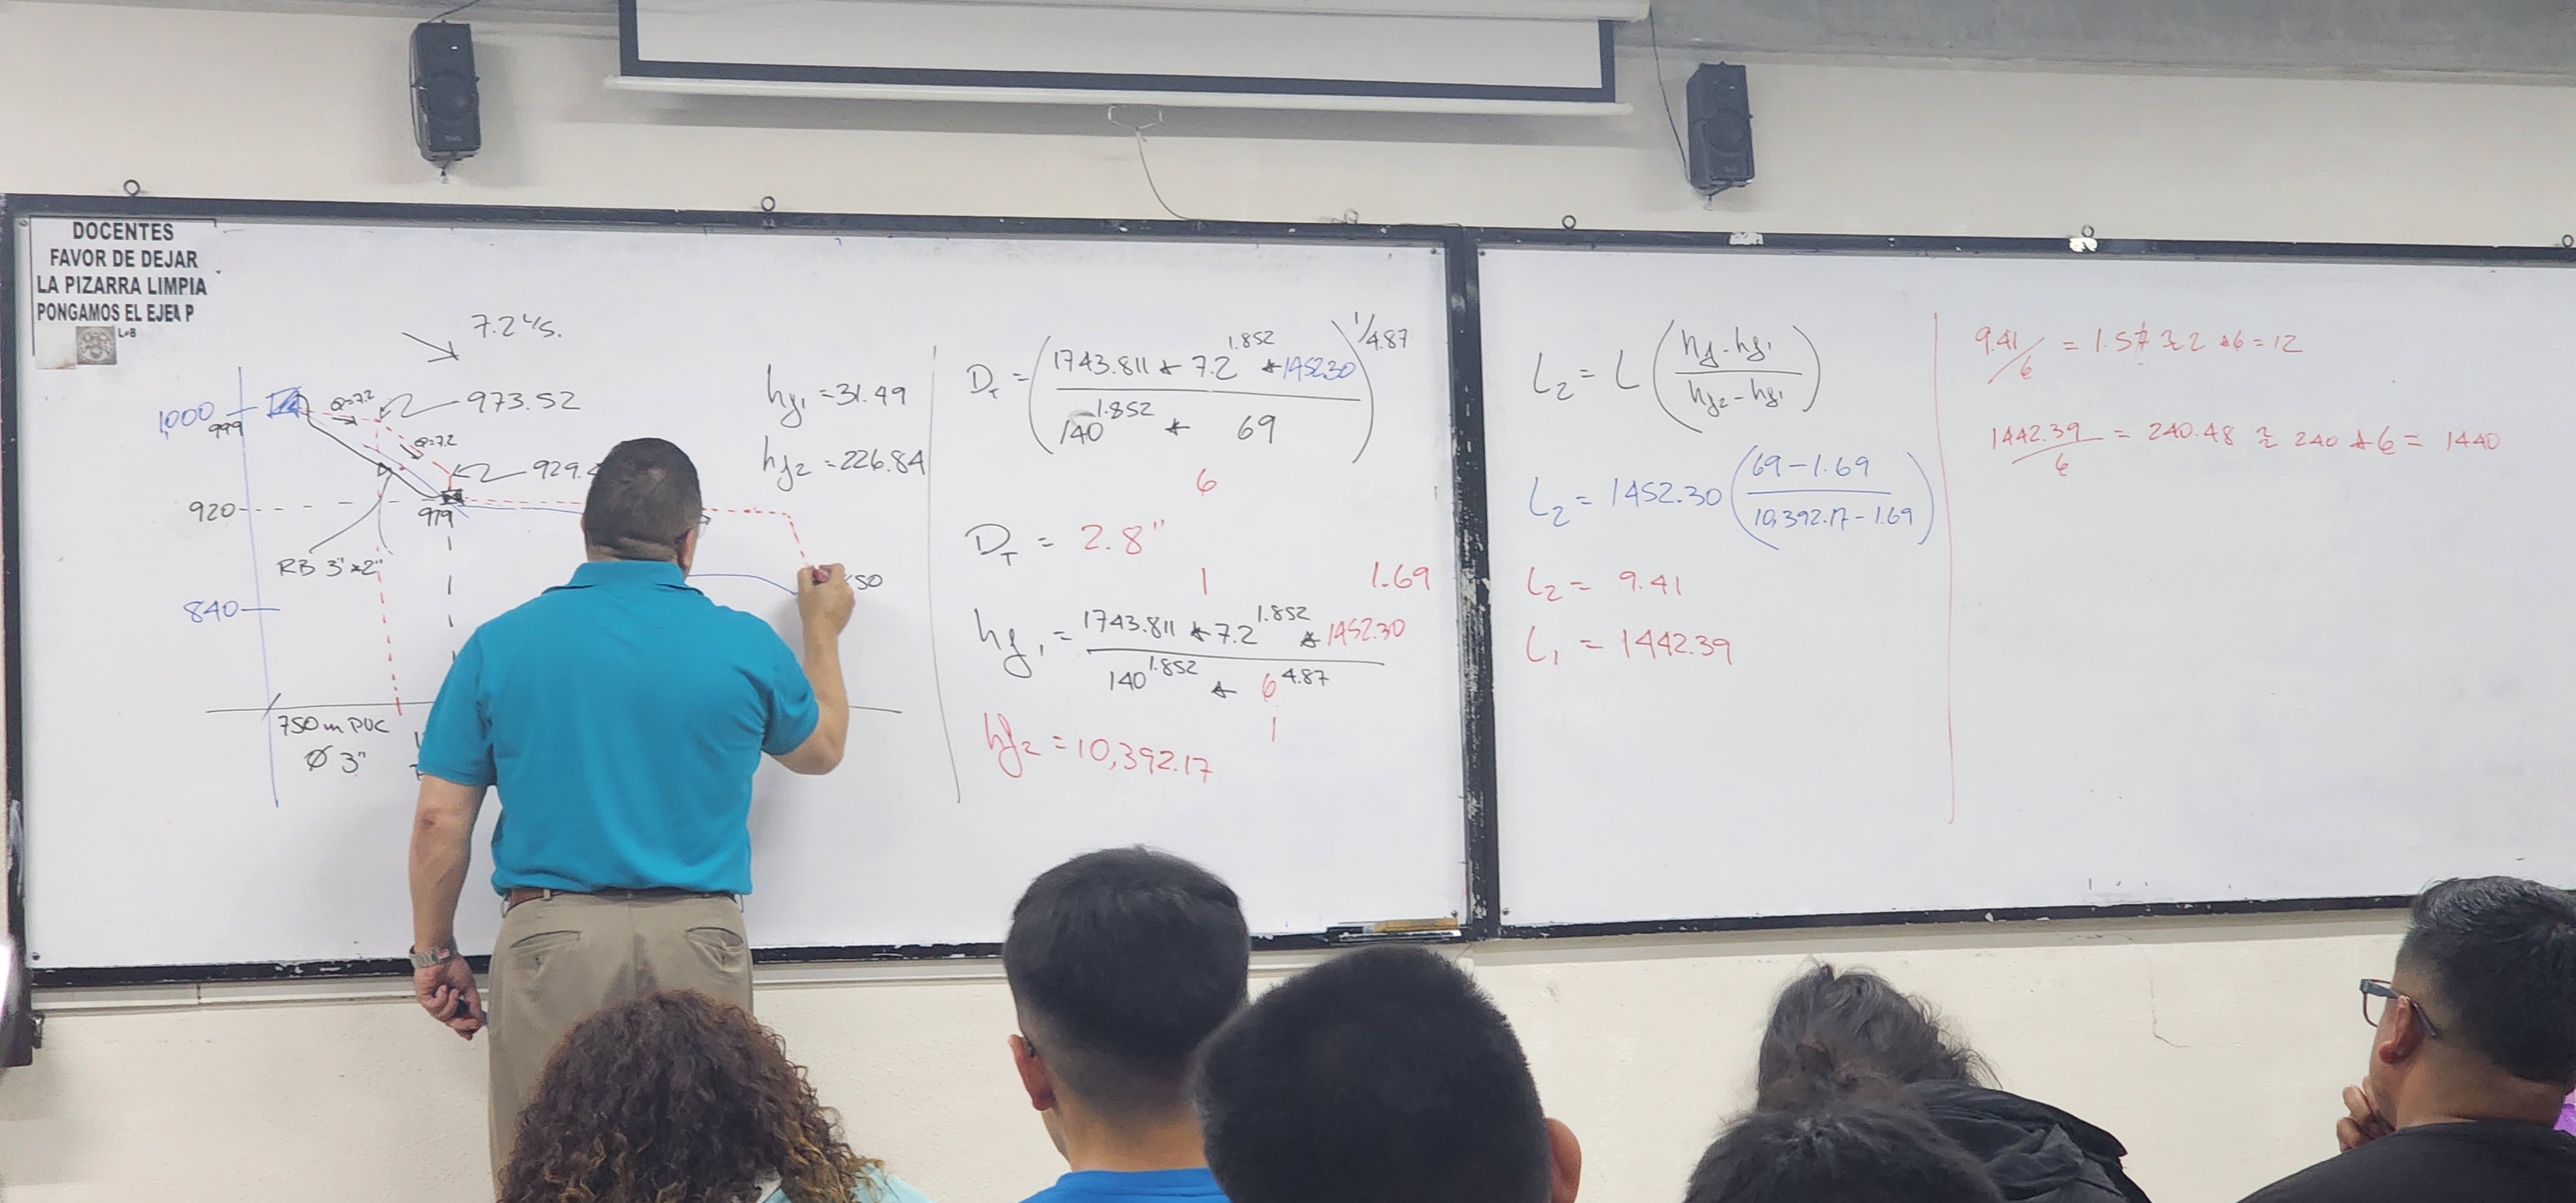 DOCENTES
FAVOR DE DEJAR
LA PIZARRA LIMPIA
PONGAMOS EL EJEM P
LoB
7.2 L/S.
1,000
999
Q=7.2
973.52
Q=7.2
929.
920
979
RB 3"x2"
840
50
750 m PVC
Ø 3"
hf1 = 31.49
hf2 = 226.84
DT = (1743.811 * 7.2^1.852 * 1452.30 / 140^1.852 * 69)^1/4.87
6
DT = 2.8"
1
1.69
hf1 = 1743.811 * 7.2^1.852 * 1452.30 / 140^1.852 * 6^4.87
1
hf2 = 10,392.17
L2 = L (hf - hf1 / hf2 - hf1)
L2 = 1452.30 (69 - 1.69 / 10,392.17 - 1.69)
L2 = 9.41
L1 = 1442.39
9.41/6 = 1.57 ≈ 2 * 6 = 12
1442.39/6 = 240.48 ≈ 240 * 6 = 1440